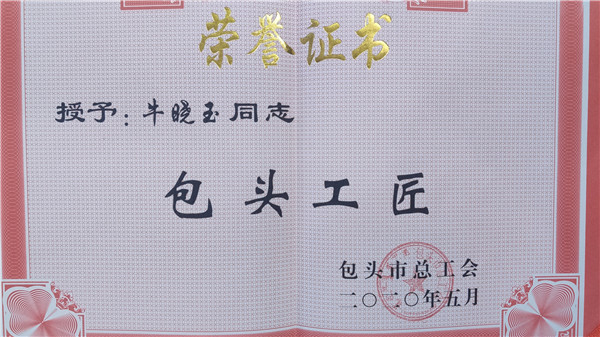 荣誉证书
授予：牛晓玉同志
包头工匠
包头市总工会
二〇二〇年五月